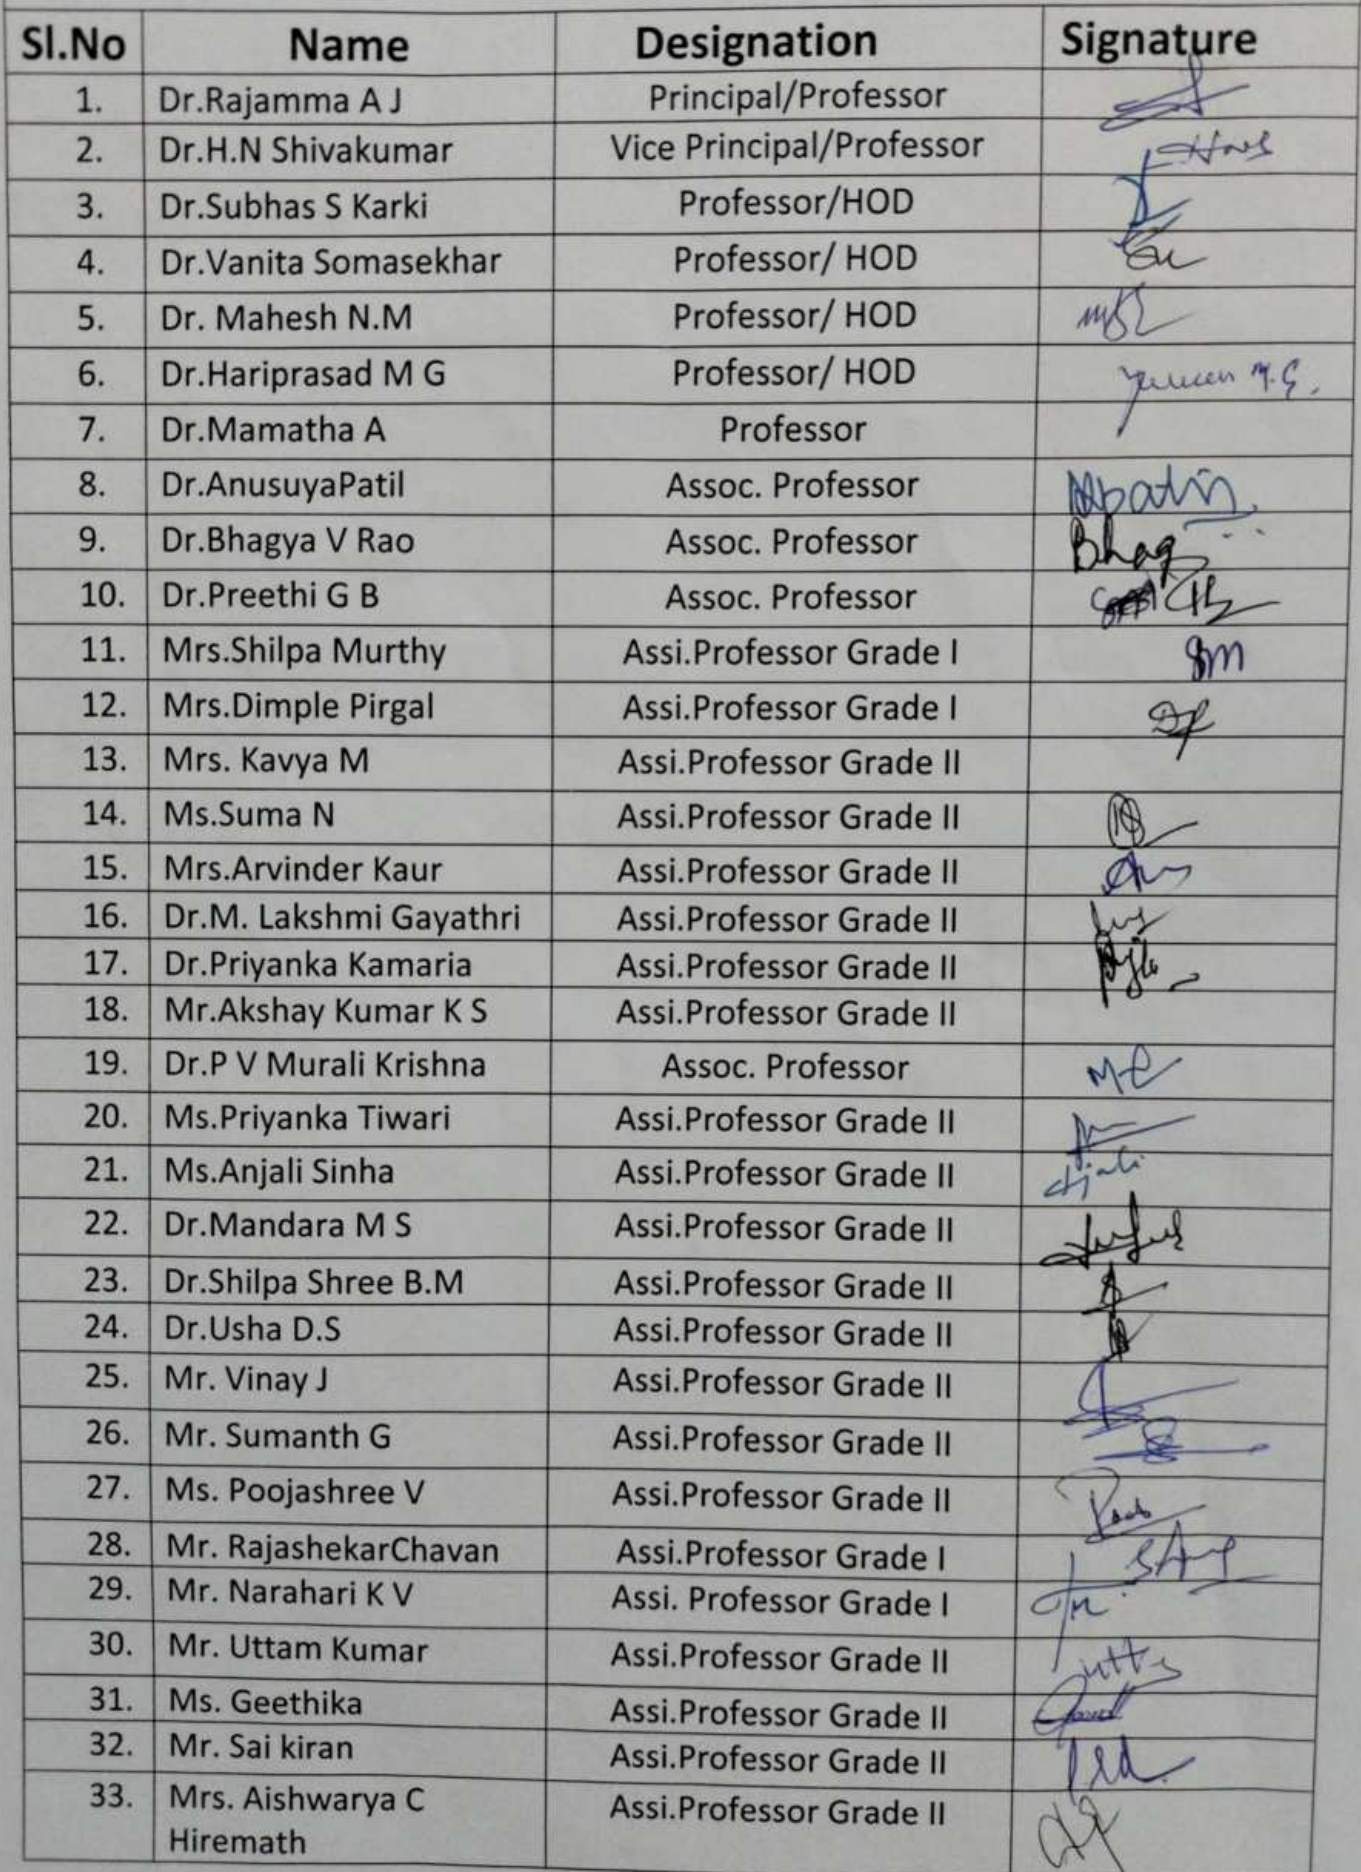 Sl.No Name Designation Signature
1. Dr.Rajamma A J Principal/Professor
2. Dr.H.N Shivakumar Vice Principal/Professor
3. Dr.Subhas S Karki Professor/HOD
4. Dr.Vanita Somasekhar Professor/ HOD
5. Dr. Mahesh N.M Professor/ HOD
6. Dr.Hariprasad M G Professor/ HOD
7. Dr.Mamatha A Professor
8. Dr.AnusuyaPatil Assoc. Professor
9. Dr.Bhagya V Rao Assoc. Professor
10. Dr.Preethi G B Assoc. Professor
11. Mrs.Shilpa Murthy Assi.Professor Grade I
12. Mrs.Dimple Pirgal Assi.Professor Grade I
13. Mrs. Kavya M Assi.Professor Grade II
14. Ms.Suma N Assi.Professor Grade II
15. Mrs.Arvinder Kaur Assi.Professor Grade II
16. Dr.M. Lakshmi Gayathri Assi.Professor Grade II
17. Dr.Priyanka Kamaria Assi.Professor Grade II
18. Mr.Akshay Kumar K S Assi.Professor Grade II
19. Dr.P V Murali Krishna Assoc. Professor
20. Ms.Priyanka Tiwari Assi.Professor Grade II
21. Ms.Anjali Sinha Assi.Professor Grade II
22. Dr.Mandara M S Assi.Professor Grade II
23. Dr.Shilpa Shree B.M Assi.Professor Grade II
24. Dr.Usha D.S Assi.Professor Grade II
25. Mr. Vinay J Assi.Professor Grade II
26. Mr. Sumanth G Assi.Professor Grade II
27. Ms. Poojashree V Assi.Professor Grade II
28. Mr. RajashekarChavan Assi.Professor Grade I
29. Mr. Narahari K V Assi. Professor Grade I
30. Mr. Uttam Kumar Assi.Professor Grade II
31. Ms. Geethika Assi.Professor Grade II
32. Mr. Sai kiran Assi.Professor Grade II
33. Mrs. Aishwarya C Assi.Professor Grade II
Hiremath